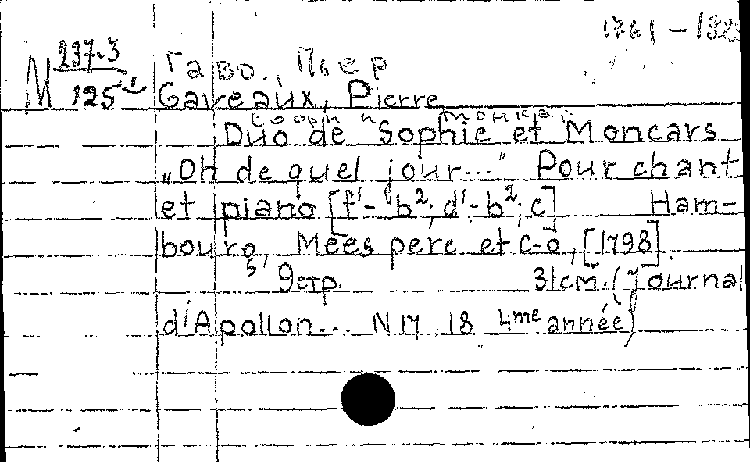 1761 – 182
М 237-3
125
Гаво, Пьер
Gaveaux, Pierre
Duo de Sophie et Moncars
„Oh de quel jour..." Pour chant
et piano [f¹-b²; d¹-b²; c] Ham-
bourg, Mees pere et c-o, [1798].
9 стр. 31cm. (Journal
d'Apollon... N 17 18 4me année)